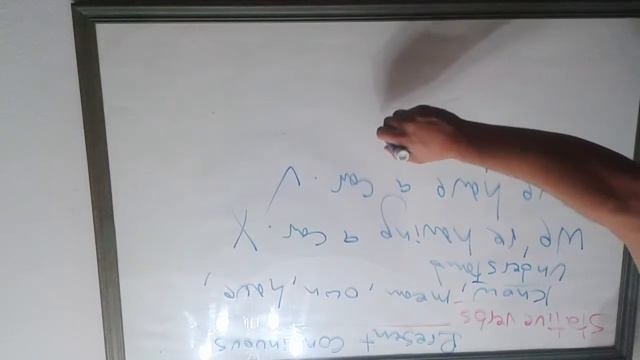 Present Continuous
Stative verbs
Know, mean, own, have,
understand
We're having a car. X
have a car. ✓